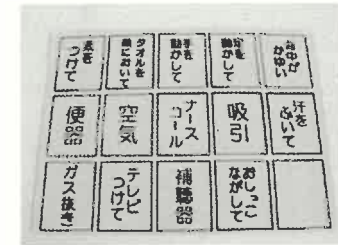 つけて
タオルを
において
手を
動かして
動かして
背中が
かゆい
便器
空気
ナース
コール
吸引
汗を
ふいて
ガス抜き
テレビ
つけて
補聴器
おしっこ
ながして